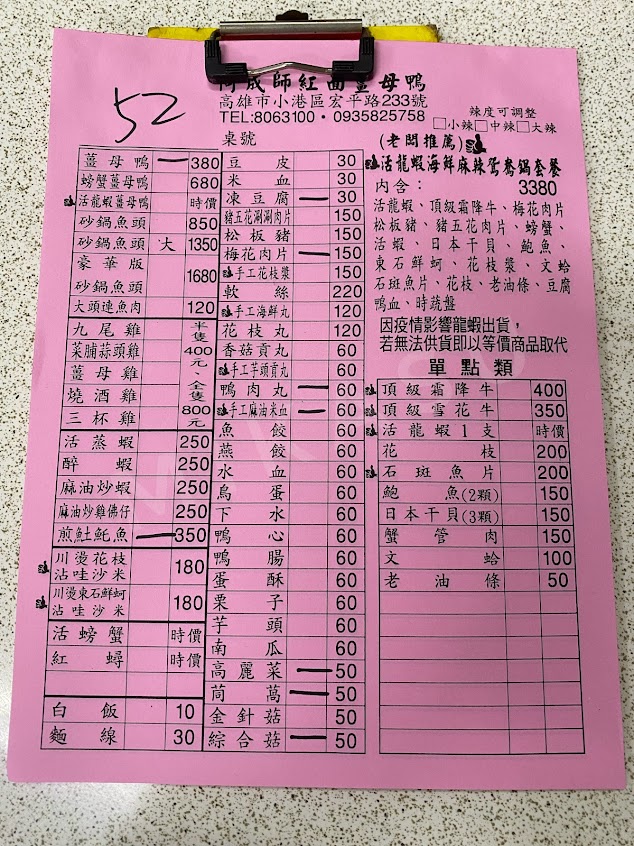 52
師紅面薑母鴨
高雄市小港區宏平路233號
TEL:8063100・0935825758
桌號
辣度可調整
□小辣□中辣□大辣
薑母鴨 一 380
螃蟹薑母鴨 680
活龍蝦薑母鴨 時價
砂鍋魚頭 850
砂鍋魚頭 大 1350
豪華版
砂鍋魚頭 1680
大頭連魚肉 120
九尾雞
菜脯蒜頭雞
薑母雞
燒酒雞
三杯雞
半隻400元、全隻800元
活蒸蝦 250
醉蝦 250
麻油炒蝦 250
麻油炒雞佛仔 250
煎𩵚魠魚 一 350
川燙花枝
沾哇沙米 180
川燙東石鮮蚵
沾哇沙米 180
活螃蟹 時價
紅蟳 時價
白飯 10
麵線 30
豆皮 30
米血 30
凍豆腐 一 30
豬五花涮涮肉片 150
松板豬 150
梅花肉片 一 150
手工花枝漿 150
軟絲 220
手工海鮮丸 120
花枝丸 120
香菇貢丸 60
手工芋頭貢丸 60
鴨肉丸 一 60
手工麻油米血 一 60
魚餃 60
燕餃 60
水血 60
鳥蛋 60
下水 60
鴨心 60
鴨腸 60
蛋酥 60
栗子 60
芋頭 60
南瓜 60
高麗菜 一 50
茼萵 一 50
金針菇 50
綜合菇 一 50
(老闆推薦)
活龍蝦海鮮麻辣鴛鴦鍋套餐
內含： 3380
活龍蝦、頂級霜降牛、梅花肉片
松板豬、豬五花肉片、螃蟹、
活蝦、日本干貝、鮑魚、
東石鮮蚵、花枝漿、文蛤
石斑魚片、花枝、老油條、豆腐
鴨血、時蔬盤
因疫情影響龍蝦出貨，
若無法供貨即以等價商品取代
單點類
頂級霜降牛 400
頂級雪花牛 350
活龍蝦1支 時價
花枝 200
石斑魚片 200
鮑魚(2顆) 150
日本干貝(3顆) 150
蟹管肉 150
文蛤 100
老油條 50